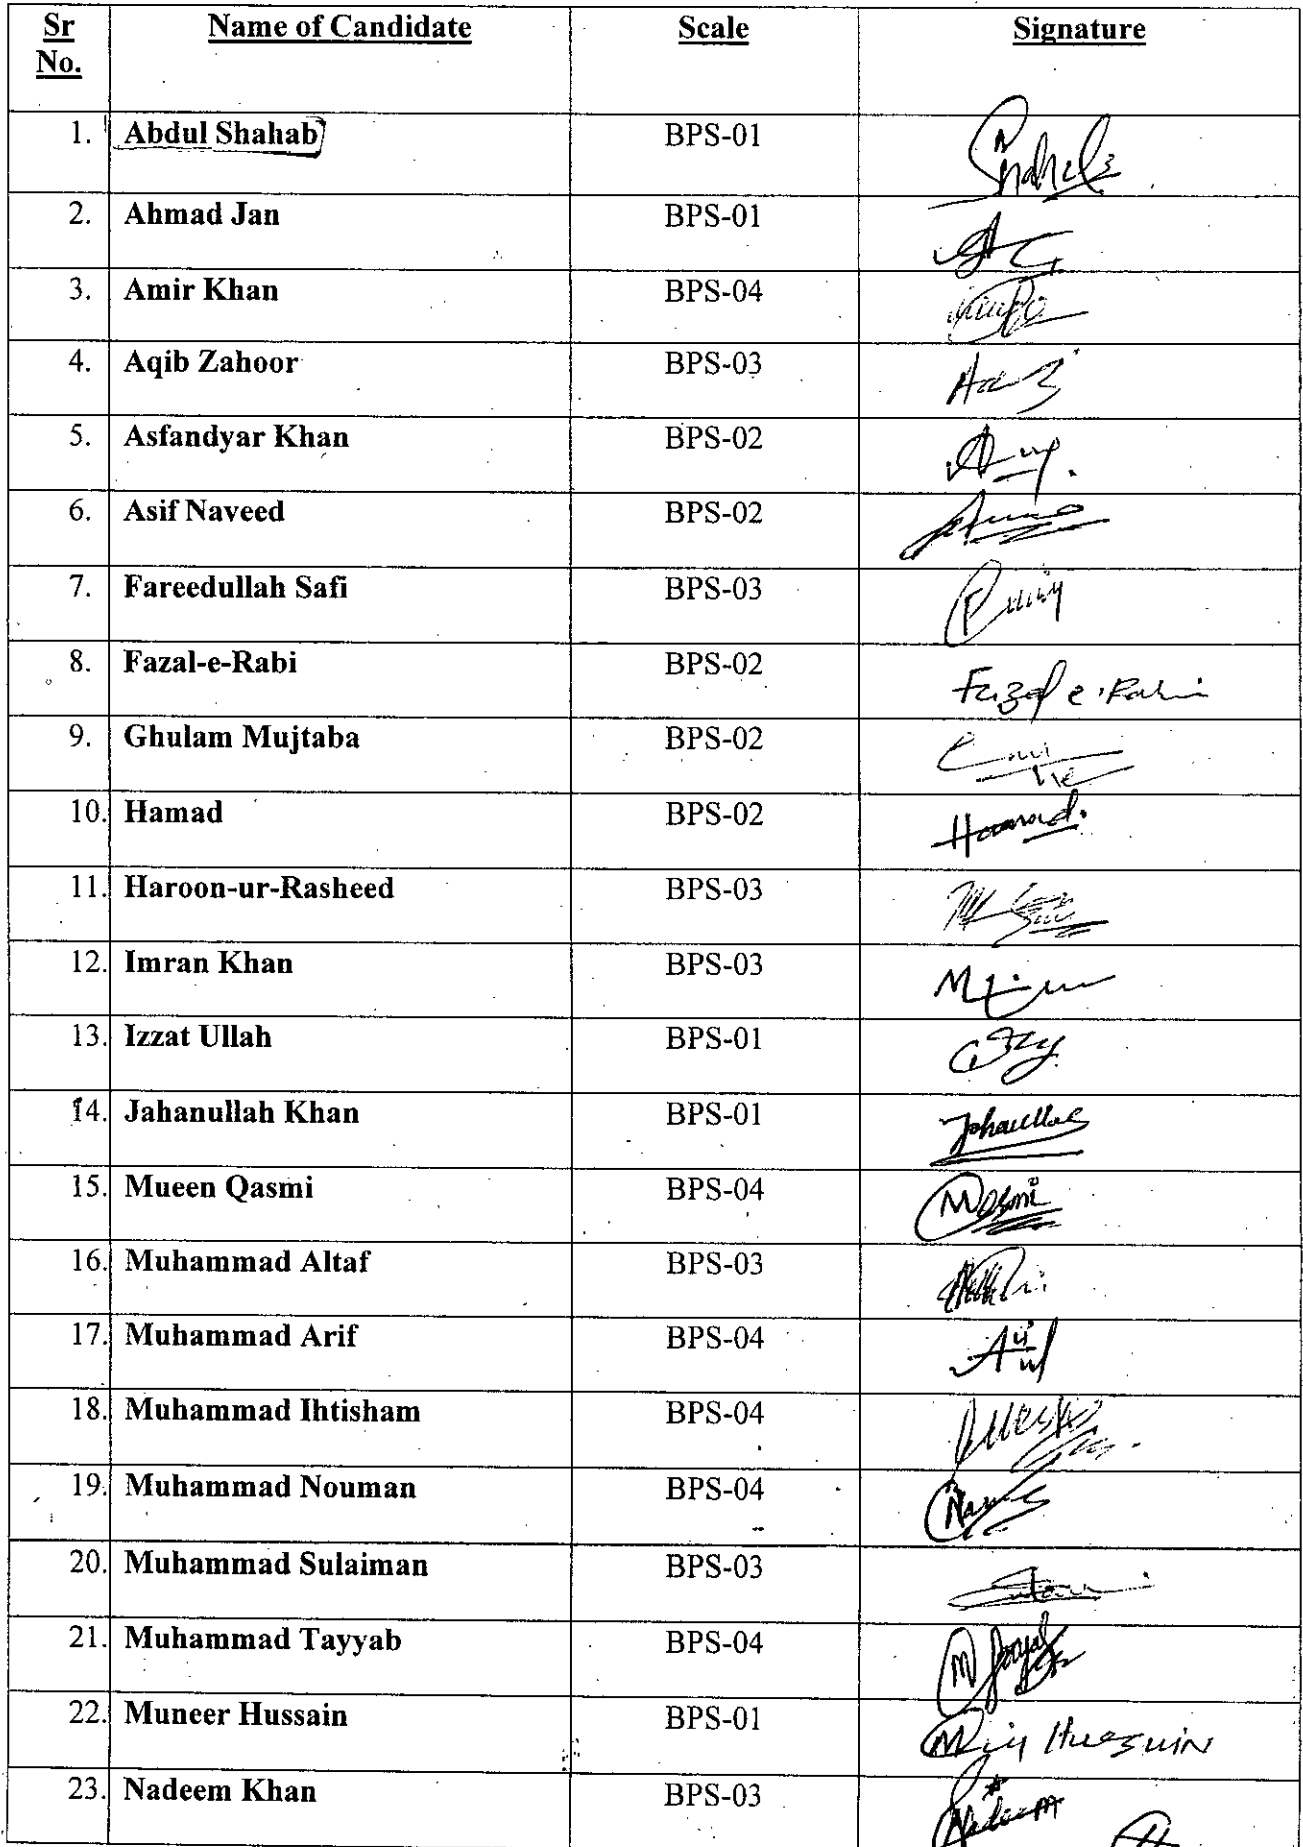 Sr No. Name of Candidate Scale Signature
1. Abdul Shahab BPS-01 Shahab
2. Ahmad Jan BPS-01
3. Amir Khan BPS-04
4. Aqib Zahoor BPS-03
5. Asfandyar Khan BPS-02
6. Asif Naveed BPS-02
7. Fareedullah Safi BPS-03
8. Fazal-e-Rabi BPS-02 Fazal e Rabi
9. Ghulam Mujtaba BPS-02
10. Hamad BPS-02 Hammad
11. Haroon-ur-Rasheed BPS-03
12. Imran Khan BPS-03
13. Izzat Ullah BPS-01
14. Jahanullah Khan BPS-01
15. Mueen Qasmi BPS-04
16. Muhammad Altaf BPS-03
17. Muhammad Arif BPS-04
18. Muhammad Ihtisham BPS-04
19. Muhammad Nouman BPS-04
20. Muhammad Sulaiman BPS-03
21. Muhammad Tayyab BPS-04
22. Muneer Hussain BPS-01
23. Nadeem Khan BPS-03 Nadeem